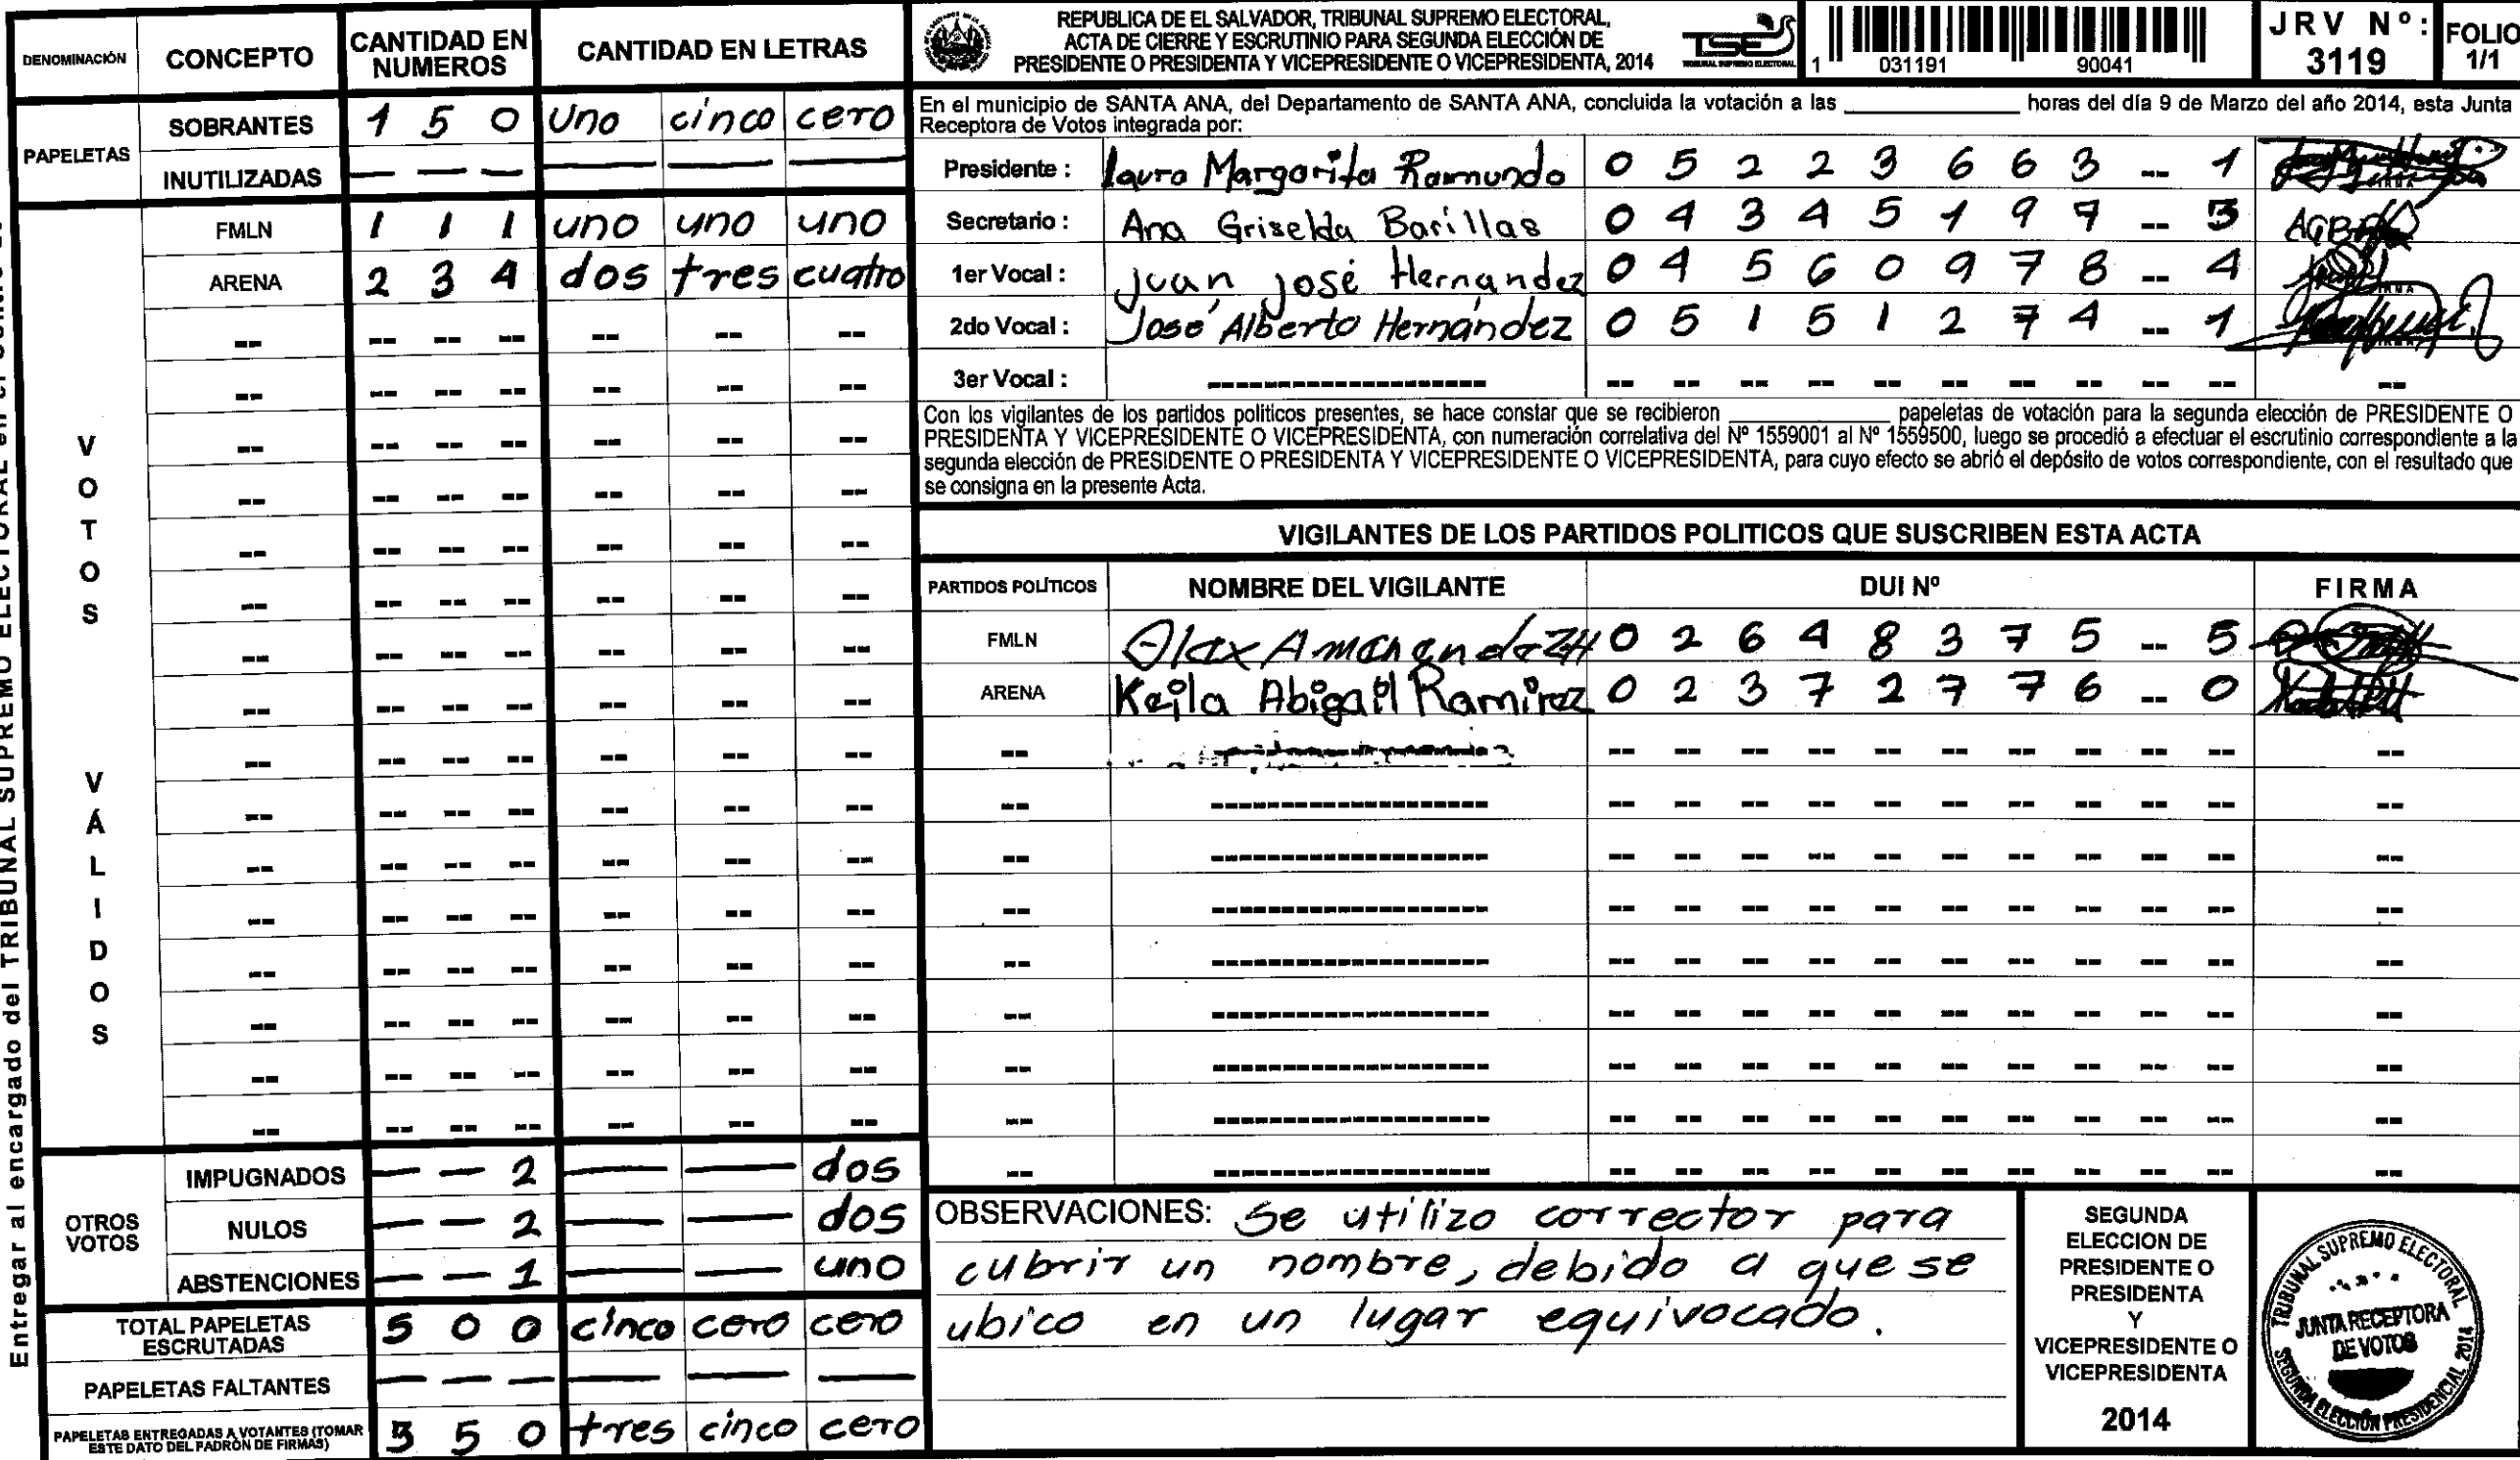 Entregar al encargado del TRIBUNAL SUPREMO ELECTORAL en el
DENOMINACIÓN CONCEPTO CANTIDAD EN NUMEROS CANTIDAD EN LETRAS
PAPELETAS SOBRANTES 1 5 0 uno cinco cero
INUTILIZADAS — — — — — —
VOTOS VÁLIDOS
FMLN 1 1 1 uno uno uno
ARENA 2 3 4 dos tres cuatro
OTROS VOTOS
IMPUGNADOS — — 2 — — dos
NULOS — — 2 — — dos
ABSTENCIONES — — 1 — — uno
TOTAL PAPELETAS ESCRUTADAS 5 0 0 cinco cero cero
PAPELETAS FALTANTES — — — — — —
PAPELETAS ENTREGADAS A VOTANTES (TOMAR ESTE DATO DEL PADRÓN DE FIRMAS) 3 5 0 tres cinco cero
REPUBLICA DE EL SALVADOR, TRIBUNAL SUPREMO ELECTORAL,
ACTA DE CIERRE Y ESCRUTINIO PARA SEGUNDA ELECCIÓN DE
PRESIDENTE O PRESIDENTA Y VICEPRESIDENTE O VICEPRESIDENTA, 2014
TSE
TRIBUNAL SUPREMO ELECTORAL
1 031191 90041
JRV Nº: 3119
FOLIO 1/1
En el municipio de SANTA ANA, del Departamento de SANTA ANA, concluida la votación a las ____ horas del día 9 de Marzo del año 2014, esta Junta
Receptora de Votos integrada por:
Presidente : Laura Margarita Raimundo 0 5 2 2 3 6 6 3 -- 1
Secretario : Ana Griselda Barillas 0 4 3 4 5 1 9 7 -- 3
1er Vocal : Juan José Hernandez 0 4 5 6 0 9 7 8 -- 4
2do Vocal : José Alberto Hernández 0 5 1 5 1 2 7 4 -- 1
3er Vocal :
Con los vigilantes de los partidos politicos presentes, se hace constar que se recibieron ____ papeletas de votación para la segunda elección de PRESIDENTE O
PRESIDENTA Y VICEPRESIDENTE O VICEPRESIDENTA, con numeración correlativa del Nº 1559001 al Nº 1559500, luego se procedió a efectuar el escrutinio correspondiente a la
segunda elección de PRESIDENTE O PRESIDENTA Y VICEPRESIDENTE O VICEPRESIDENTA, para cuyo efecto se abrió el depósito de votos correspondiente, con el resultado que
se consigna en la presente Acta.
VIGILANTES DE LOS PARTIDOS POLITICOS QUE SUSCRIBEN ESTA ACTA
PARTIDOS POLÍTICOS NOMBRE DEL VIGILANTE DUI Nº FIRMA
FMLN 0 2 6 4 8 3 7 5 -- 5
ARENA Keila Abigail Ramirez 0 2 3 7 2 7 7 6 -- 0
OBSERVACIONES: Se utilizo corrector para
cubrir un nombre, debido a que se
ubico en un lugar equivocado.
SEGUNDA
ELECCION DE
PRESIDENTE O
PRESIDENTA
Y
VICEPRESIDENTE O
VICEPRESIDENTA
2014
TRIBUNAL SUPREMO ELECTORAL
JUNTA RECEPTORA
DE VOTOS
SEGUNDA ELECCIÓN PRESIDENCIAL 2014